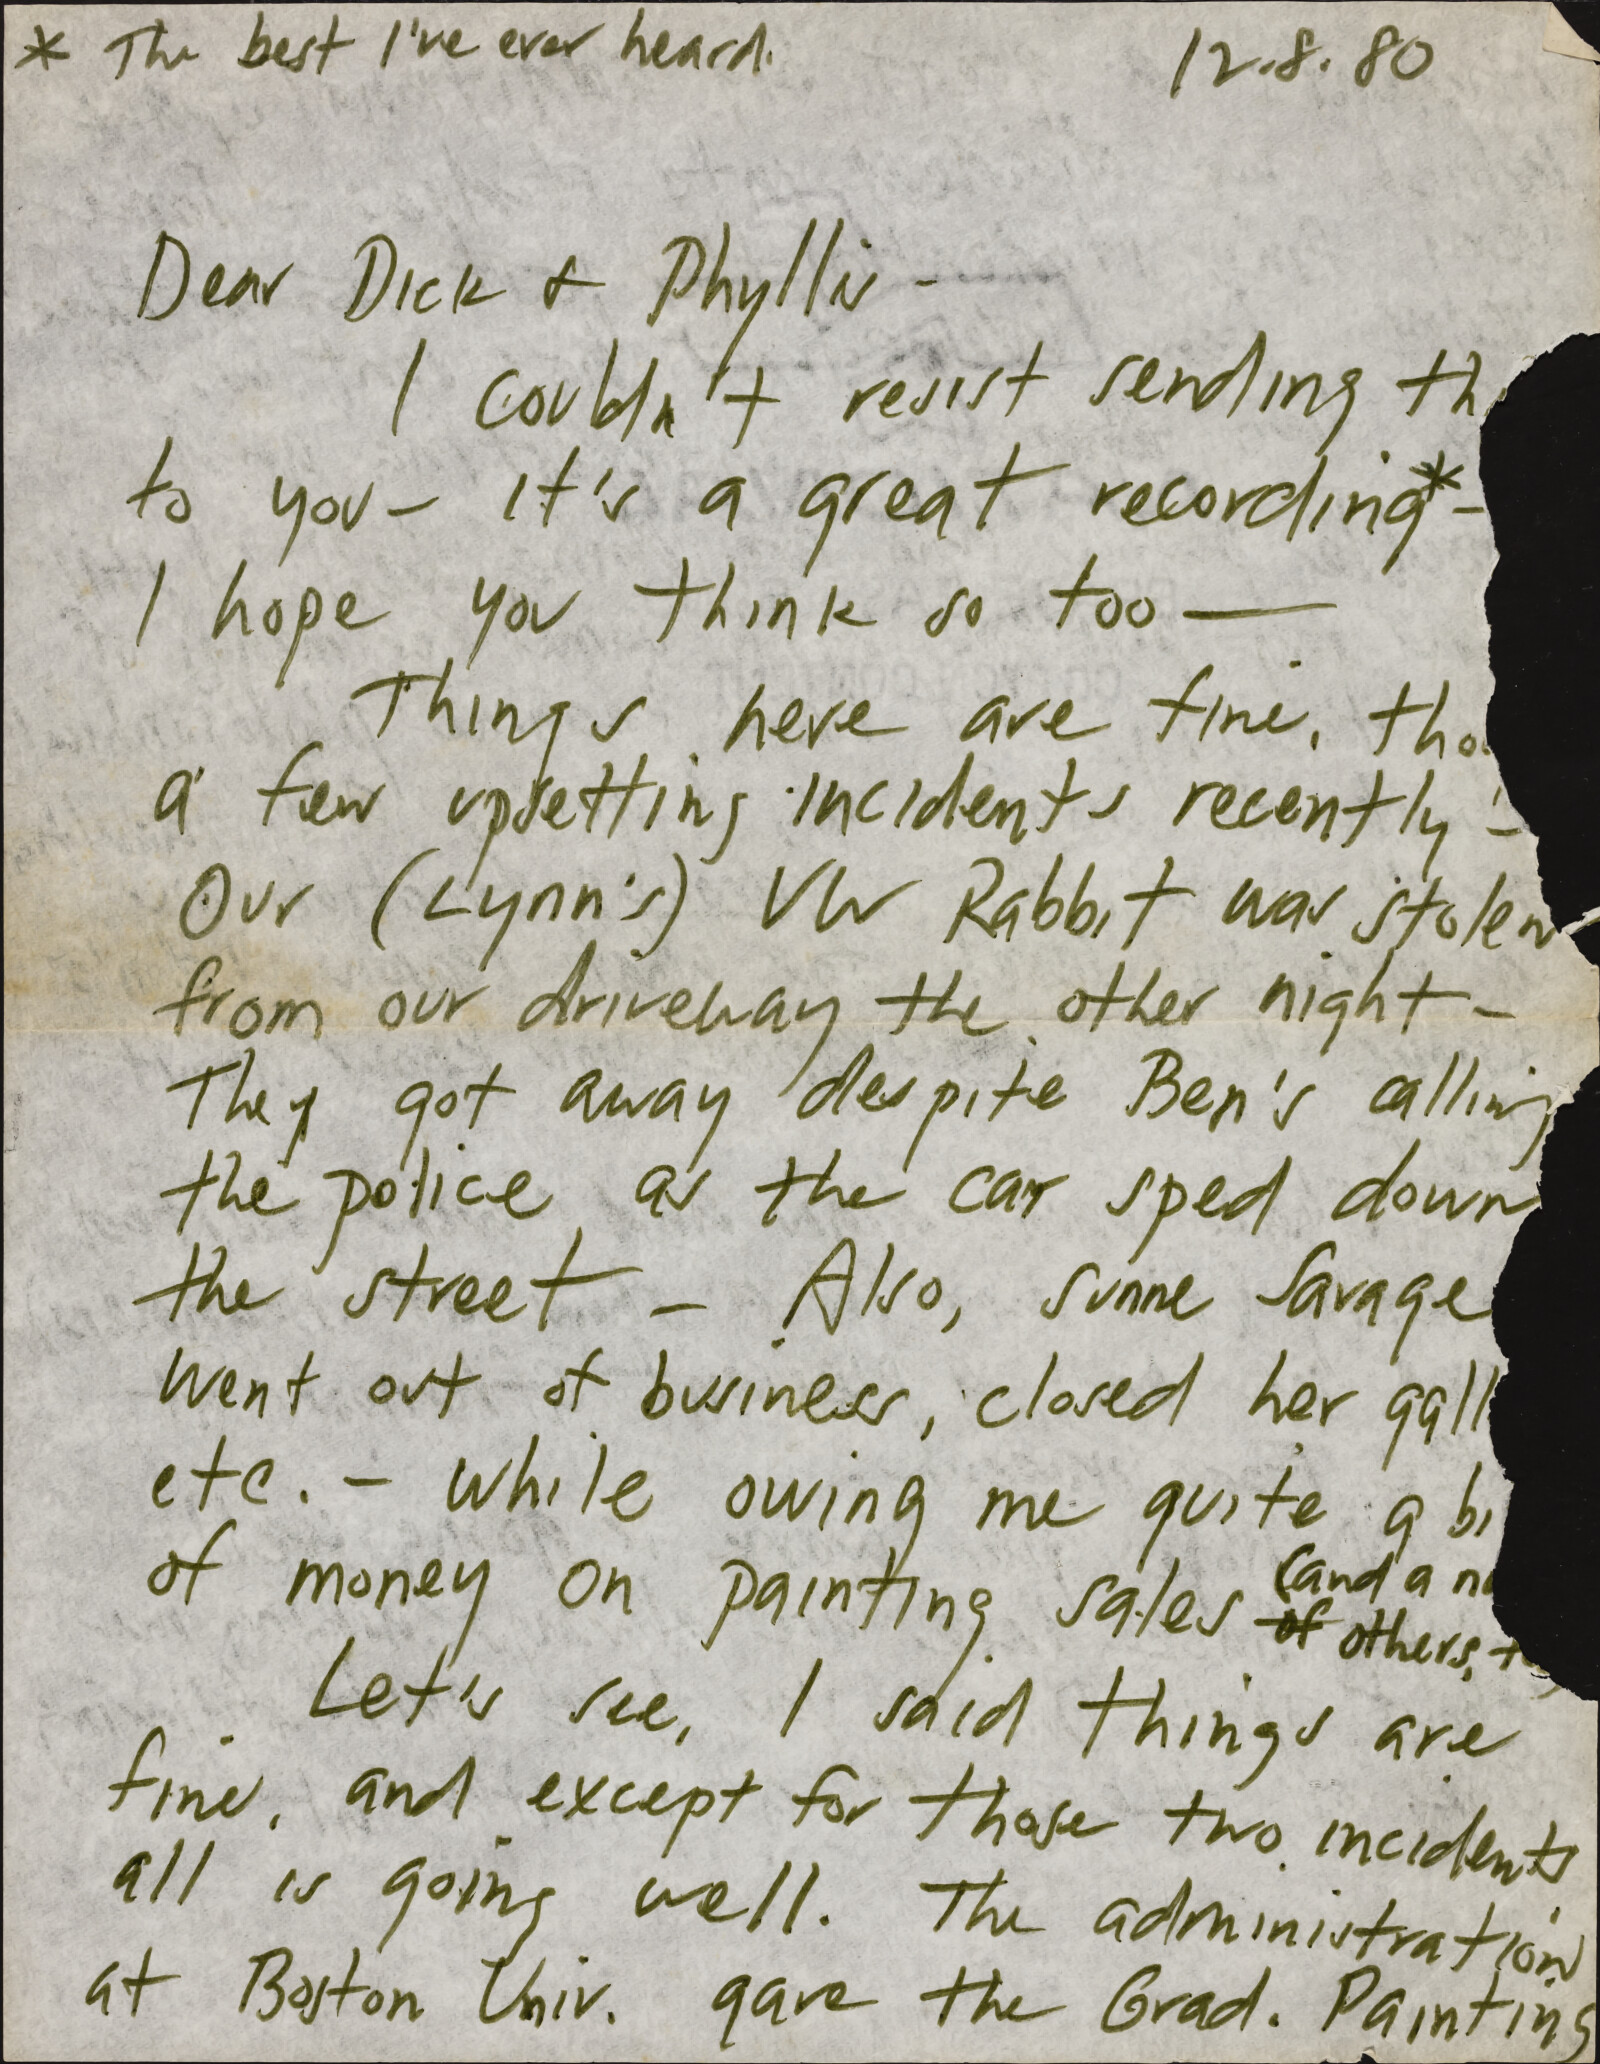 * The best I've ever heard.
12.8.80
Dear Dick & Phyllis -
I couldn't resist sending th
to you - it's a great recording* -
I hope you think so too —
Things here are fine, tho
a few upsetting incidents recently -
Our (Lynn's) VW Rabbit was stolen
from our driveway the other night -
They got away despite Ben's calling
the police as the car sped down
the street - Also, Sunne Savage
went out of business, closed her gall
etc. - while owing me quite a bi
of money on painting sales (and a n
of others, t
Let's see, I said things are
fine, and except for those two incidents
all is going well. The administration
at Boston Univ. gave the Grad. Painting